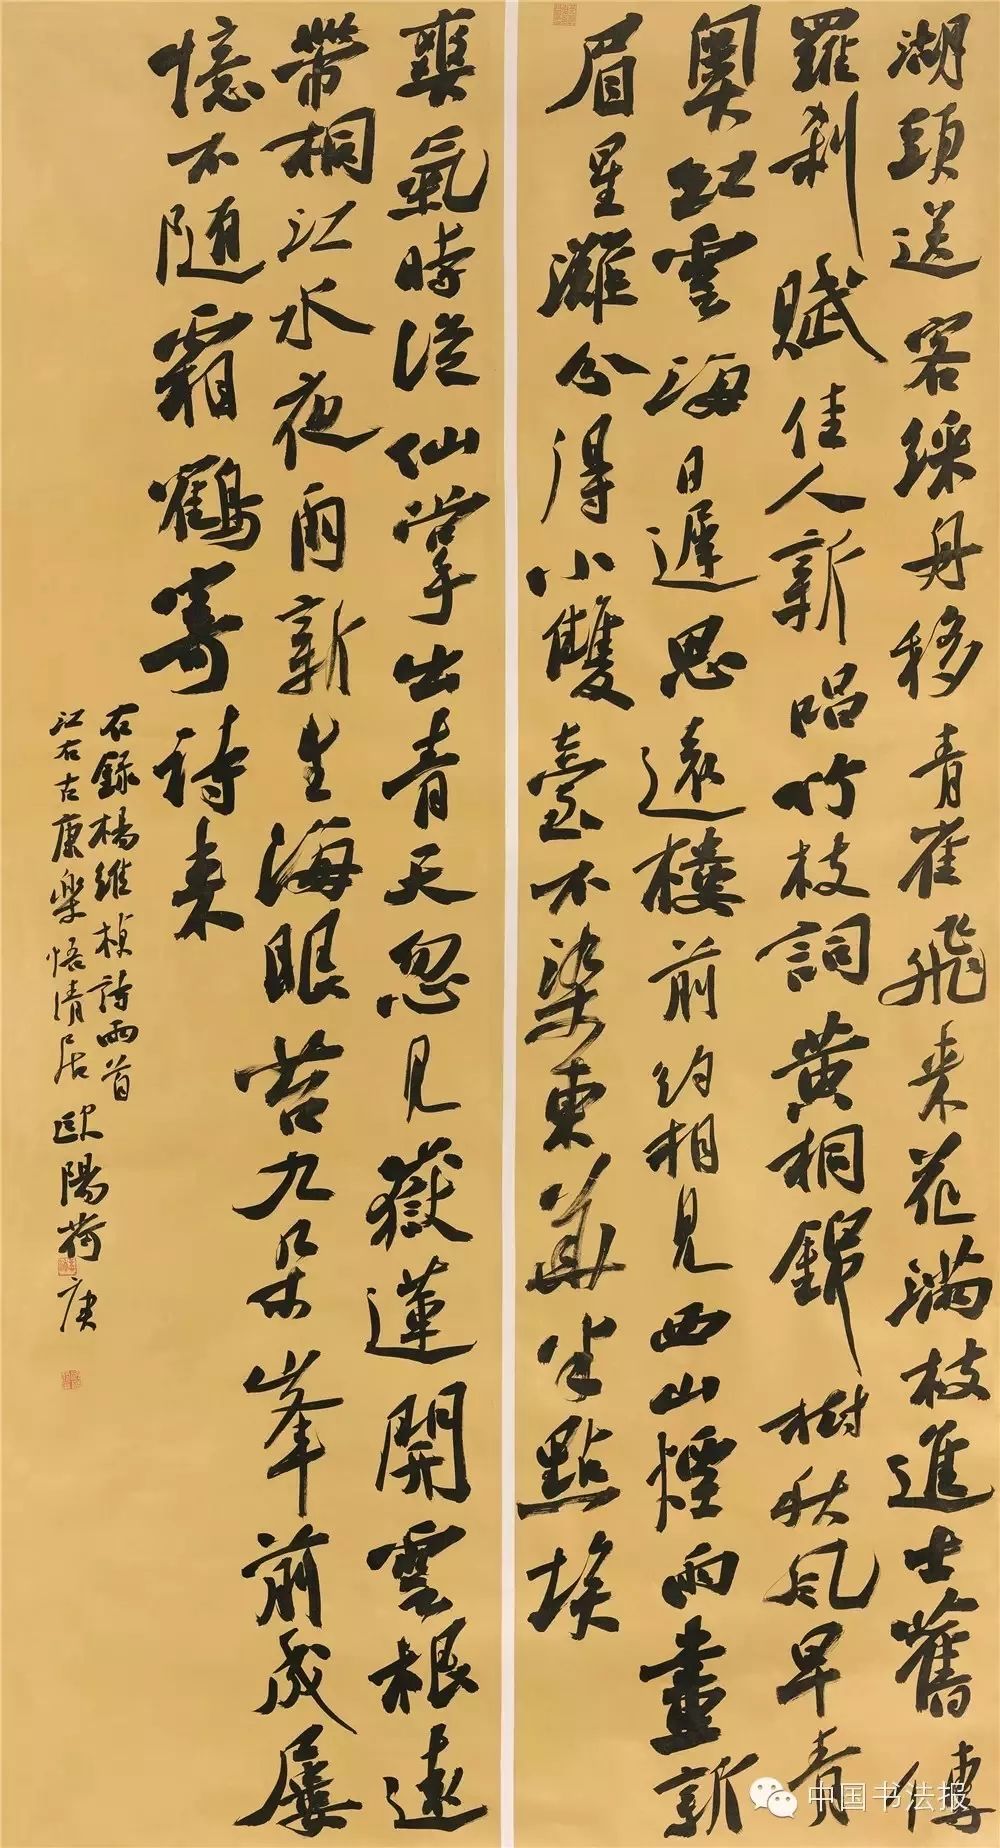 湖頭送客綵舟移青雀飛来花滿枝進士舊傳
羅刹賦佳人新唱竹枝詞黄桐錦樹秋風早青
奧紅雲海日遲思遠樓前約相見西山煙雨畫新
眉星灘分得小雙臺不染東華半點埃
爽氣時從仙掌出青天忽見嶽蓮開雲根遠
帶桐江水夜雨新生海眼苔九朵峯前成屢
憶不随霜鶴寄詩来
右録楊維楨詩兩首
江右古康樂悟清居歐陽荷庚
中国书法报